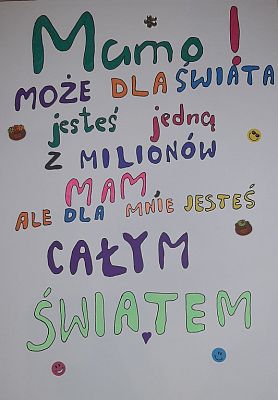 Mamo!
MOŻE DLA ŚWIATA
jesteś jedną
Z MILIONÓW
MAM
ALE DLA MNIE JESTEŚ
CAŁYM
ŚWIATEM